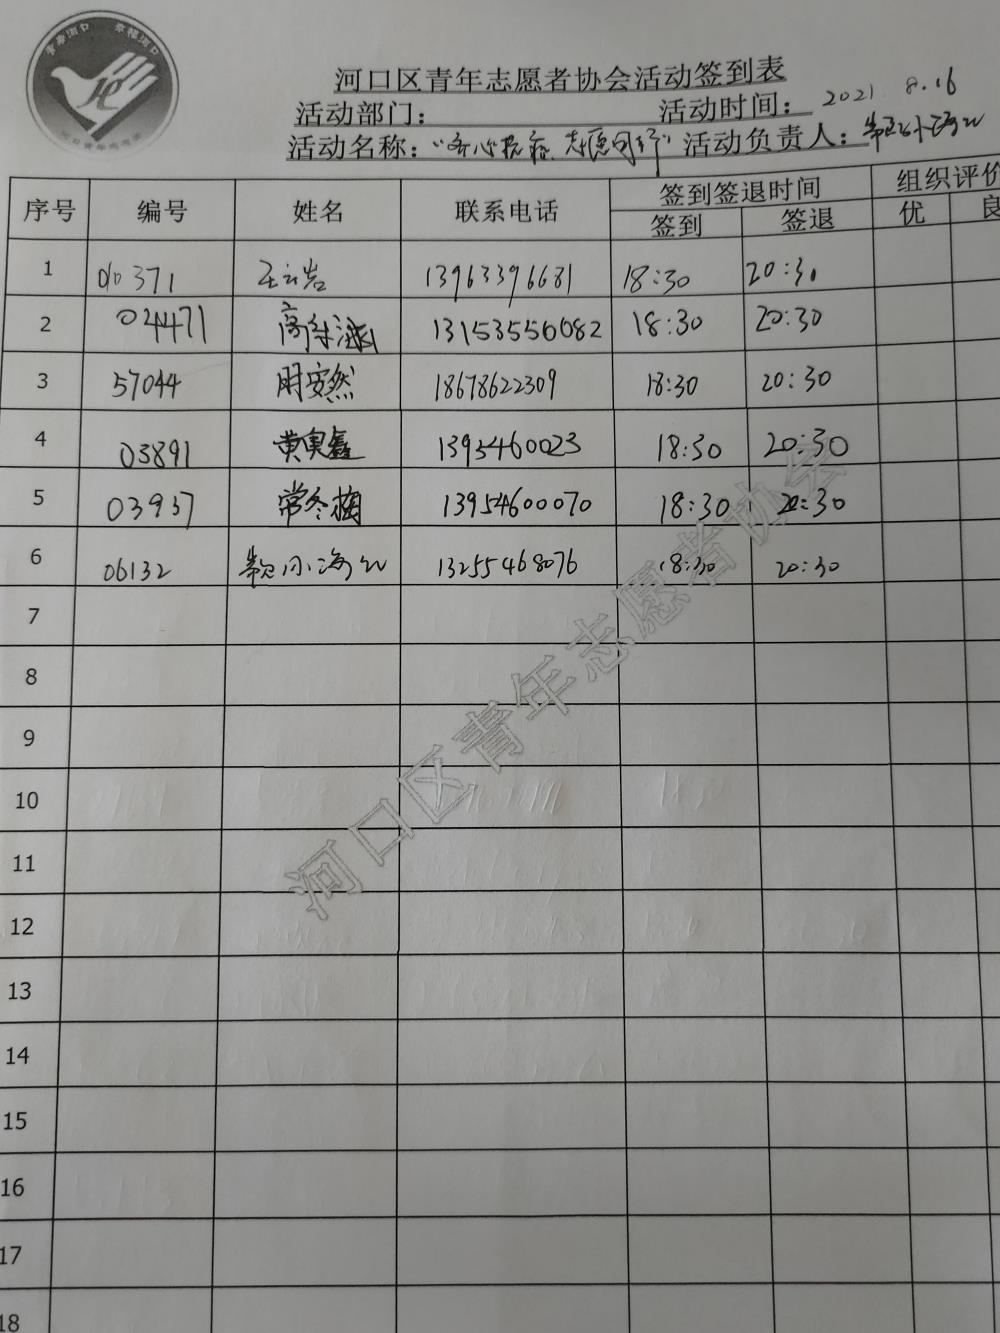 河口区青年志愿者协会活动签到表
活动部门： 活动时间： 2021 8.16
活动名称：“齐心抗疫 志愿同行” 活动负责人：
序号 编号 姓名 联系电话 签到签退时间 组织评价
签到 签退 优 良
1 010371 王云岩 13963396681 18:30 20:30
2 024471 高 13153556082 18:30 20:30
3 57044 明安然 18678622309 18:30 20:30
4 03891 黄奥鑫 1395460023 18:30 20:30
5 03937 常冬梅 13954600070 18:30 20:30
6 06132 13255468076 18:30 20:30
7
8
9
10
11
12
13
14
15
16
17
18
河口区青年志愿者协会